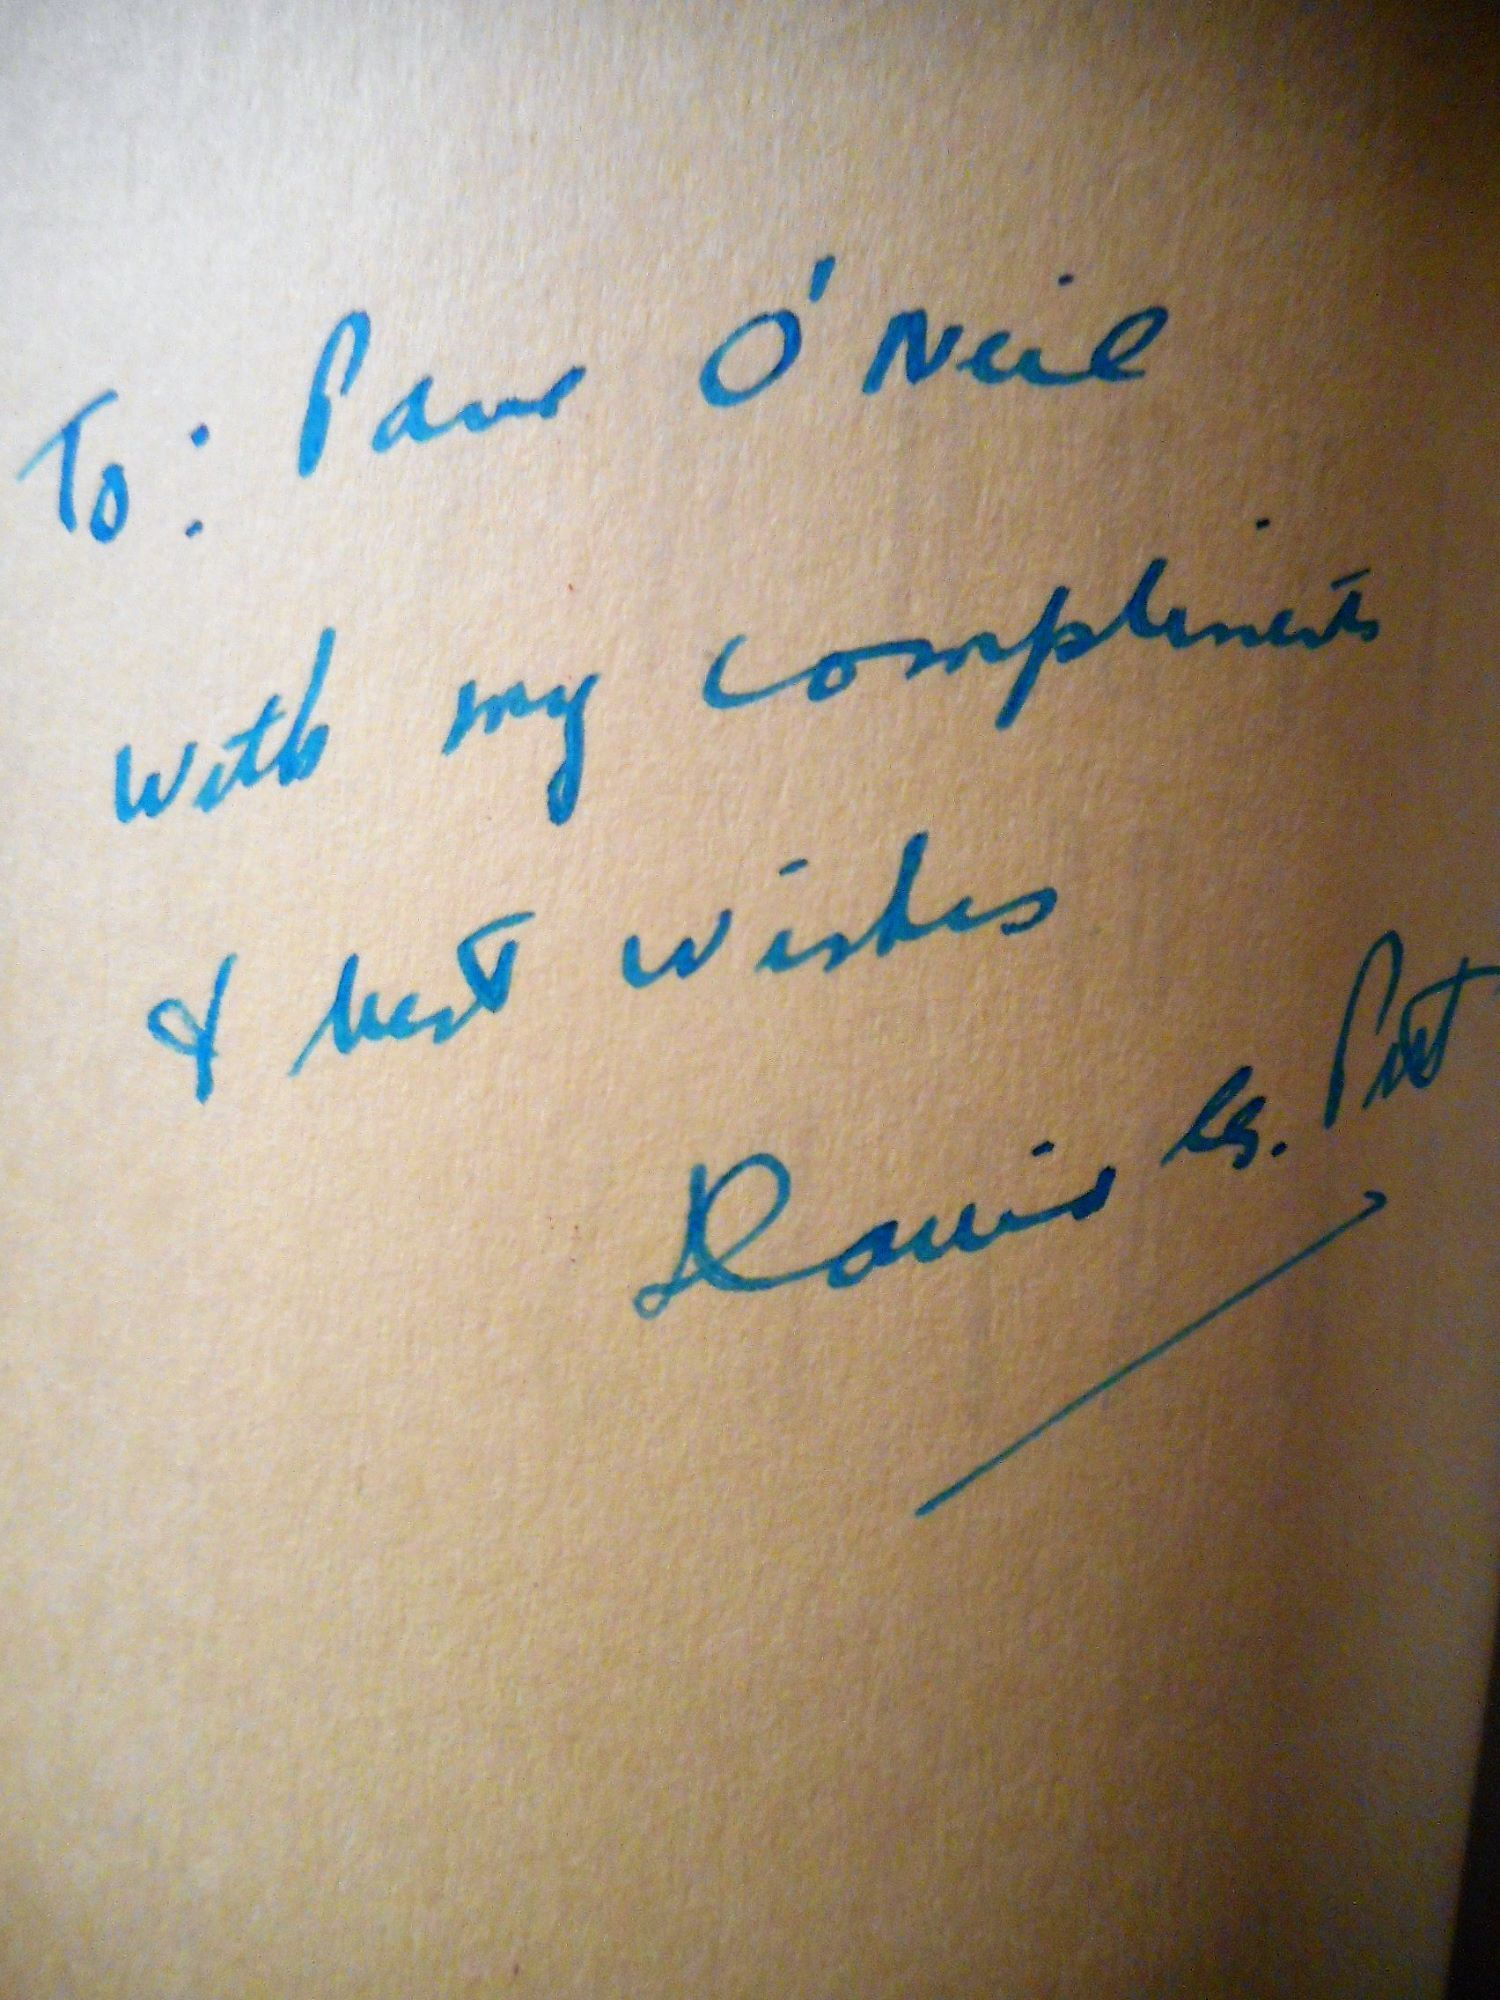 To: Paul O'Neil
With my compliments
& best wishes
David G. Pitt